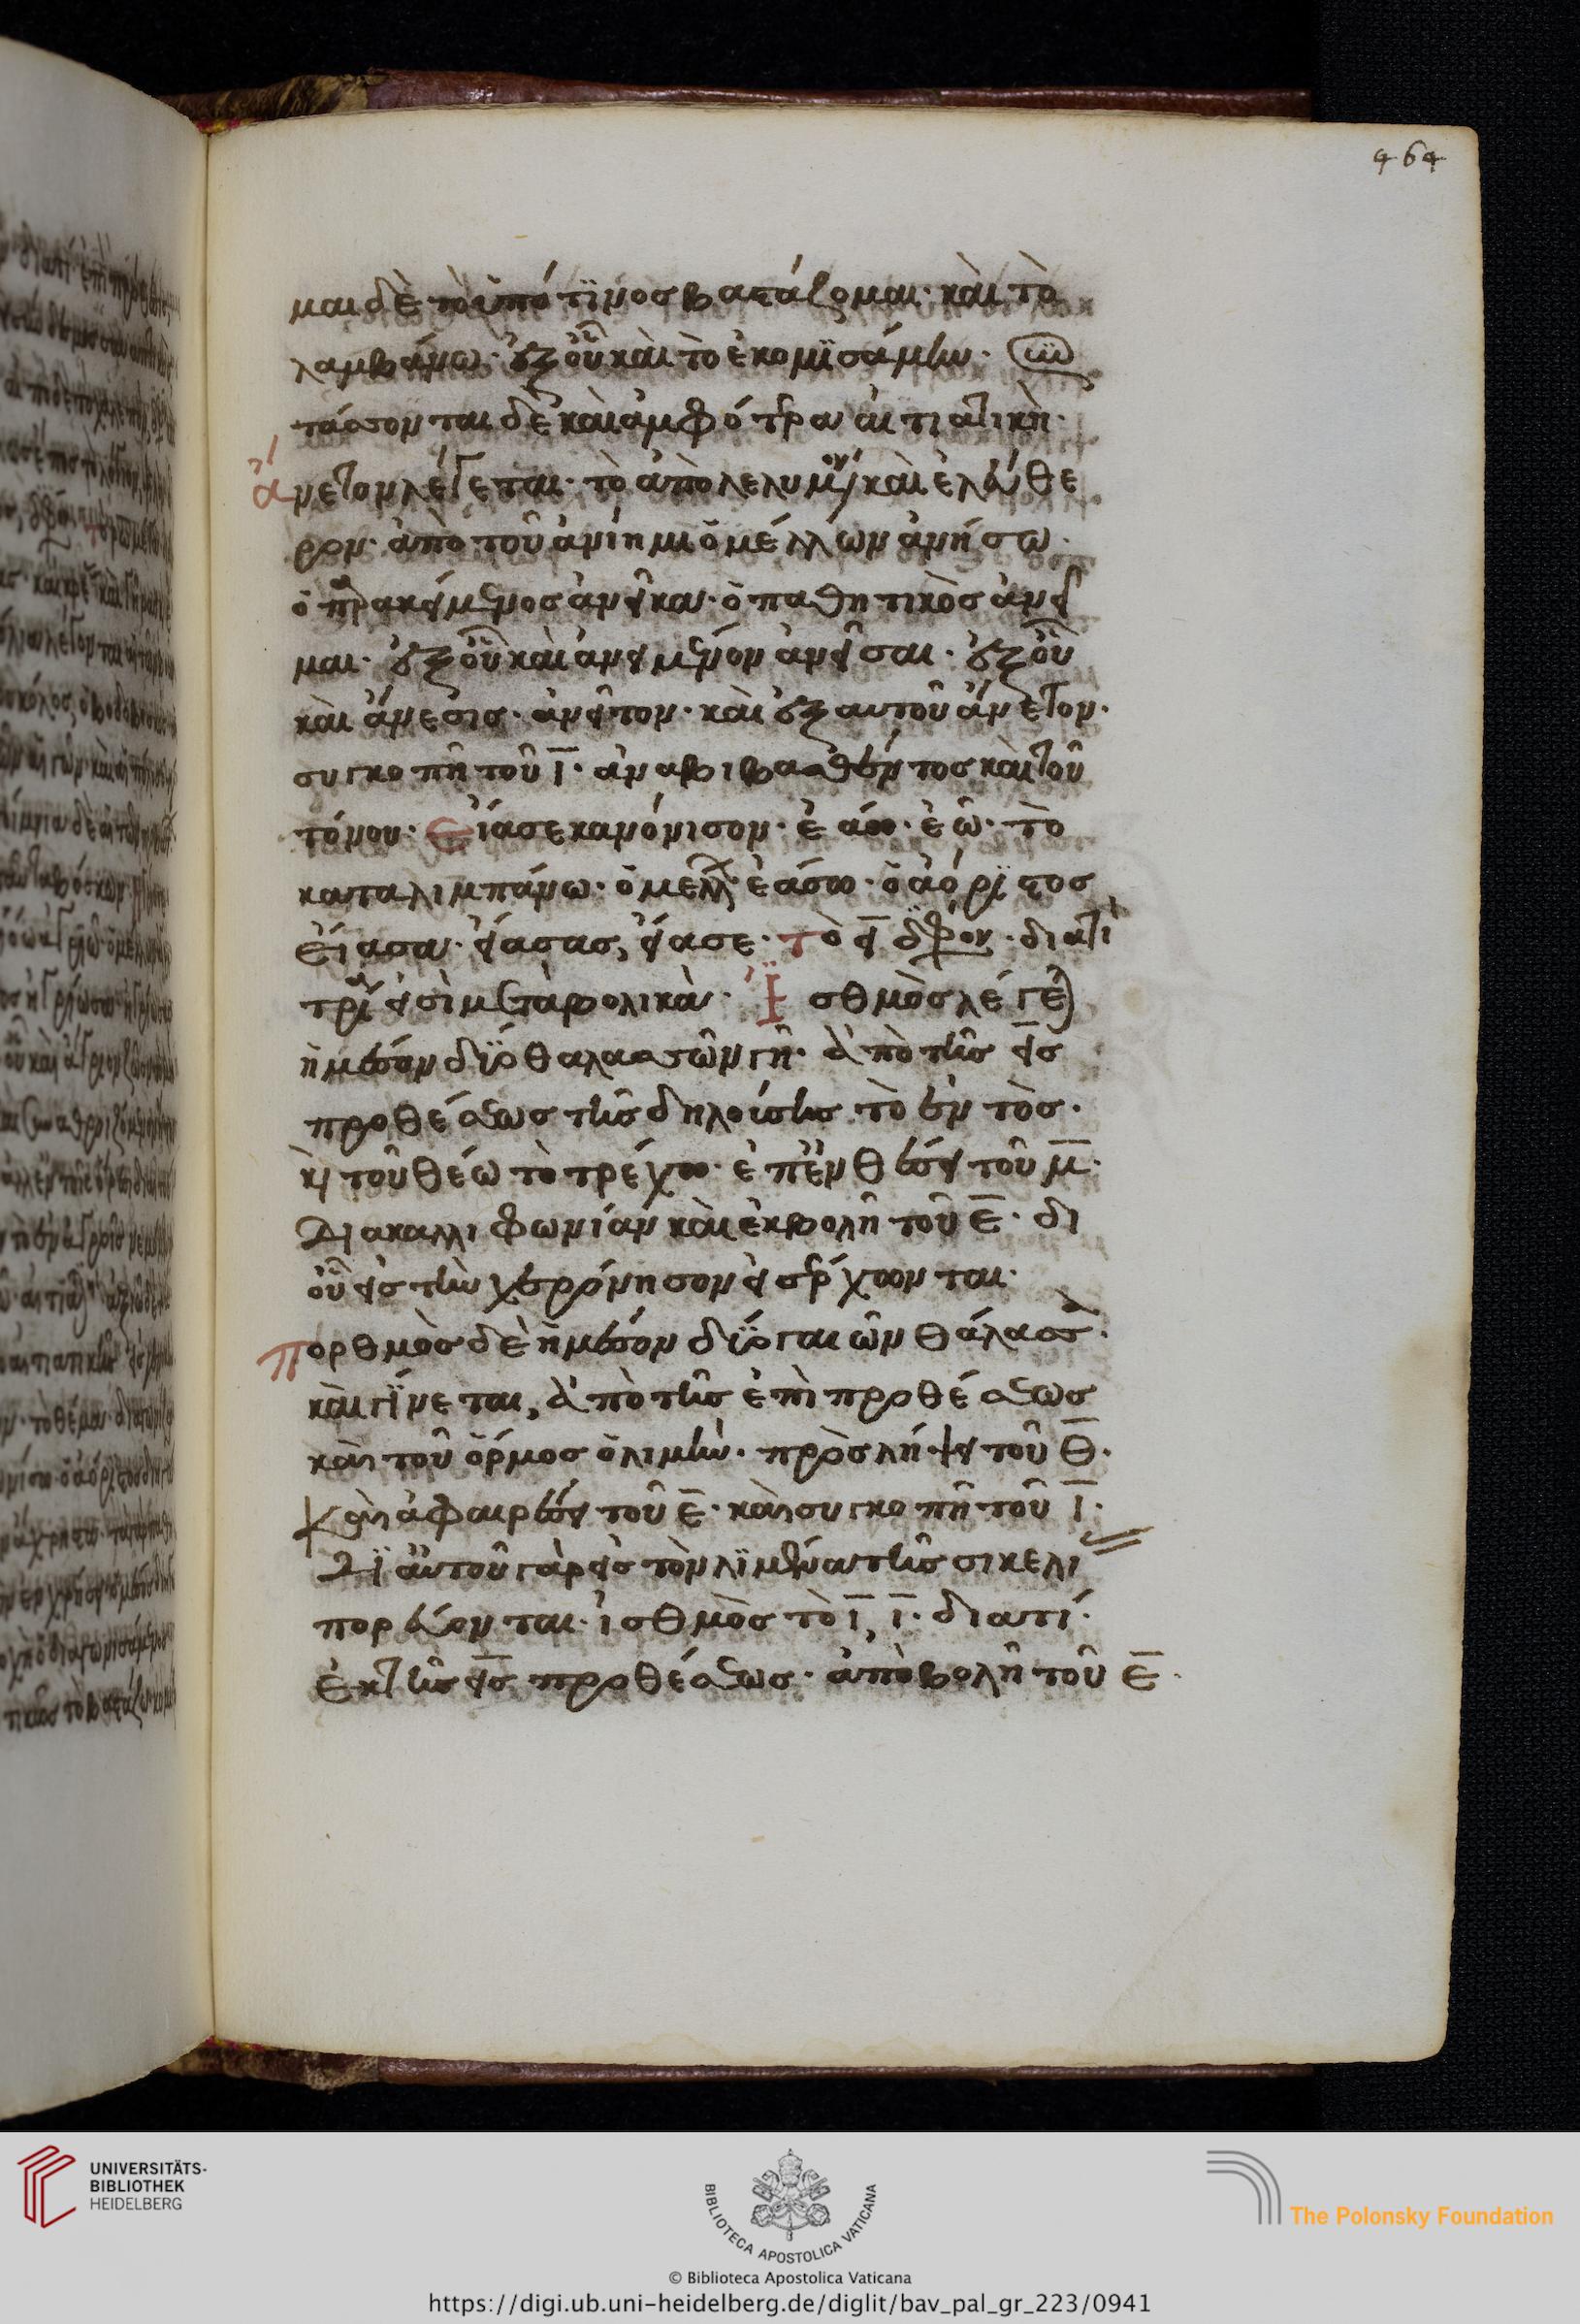 464
μαι δὲ τὸ ὑπό τϊνος βαστάζομαι· καὶ τὸ
λαμβάνω· ἐξ οὗ καὶ τὸ ἐκομϊσάμην·
τάσσονται δὲ καὶ ἀμφότερα αἰτιατικῆ·
ἄνετον λέγεται· τὸ ἀπολελυμένον καὶ ἐλεύθε
ρον· ἀπὸ τοῦ ἀνίημι ὁ μέλλων ἀνήσω·
ὁ παρακείμενος ἀνεῖκα· ὁ παθητικὸς ἀνεῖ
μαι· ἐξ οὗ καὶ ἀνειμένον ἀνεῖσαι· ἐξ οὗ
καὶ ἄνεσις· ἀνεῖτον· καὶ ἐξ αυτοῦ ἄνετον·
συγκοπῆ τοῦ ϊ· ἀναβιβασθέντος καὶ τοῦ
τόνου· Εἴασε κανόνισον· ἐάω· ἐῶ· τὸ
καταλιμπάνω· ὁ μέλλων ἐάσω· ὁ ἀόρϊστος
εἴασα· εἴασας, εἴασε· τὸ ει δίφθογγον· διατί
τρία εἰσὶ μεταβολικὰ· Ϊσθμὸς λέγεται
ἡ μέσον δύο θαλασσῶν γῆ· ἀπὸ τῆς εἰς
προθέσεως τῆς δηλούσης τὸ ἐντὸς·
καὶ τοῦ θέω τὸ τρέχω· ἐπένθεσει τοῦ μ·
Διακαλλιφωνίαν καὶ ἐκβολῆ τοῦ ε· δι
οὗ εἰς τὴν χερρόνησον εἰσέρχονται·
Πορθμὸς δὲ ἡ μέσον δύο γαιῶν θάλασσα·
καὶ γίνεται, ἀπὸ τῆς ἐπὶ προθέσεως
καὶ τοῦ ὅρμος ὁ λιμὴν· πρὸσλήψει τοῦ θ·
καὶ ἀφαιρέσει τοῦ ε· καὶ συγκοπῆ τοῦ ϊ·
Δϊ αὐτοῦ γὰρ εἰς τὸν λϊμένα τῆς σικελι
πορεύονται· ἰσθμὸς τὸ ϊ, ϊ· διατί·
ἐκ τῆς εἰς προθέσεως· ἀπὸβολῆ τοῦ ε·
UNIVERSITÄTS-
BIBLIOTHEK
HEIDELBERG
BIBLIOTECA APOSTOLICA VATICANA
The Polonsky Foundation
© Biblioteca Apostolica Vaticana
https://digi.ub.uni-heidelberg.de/diglit/bav_pal_gr_223/0941